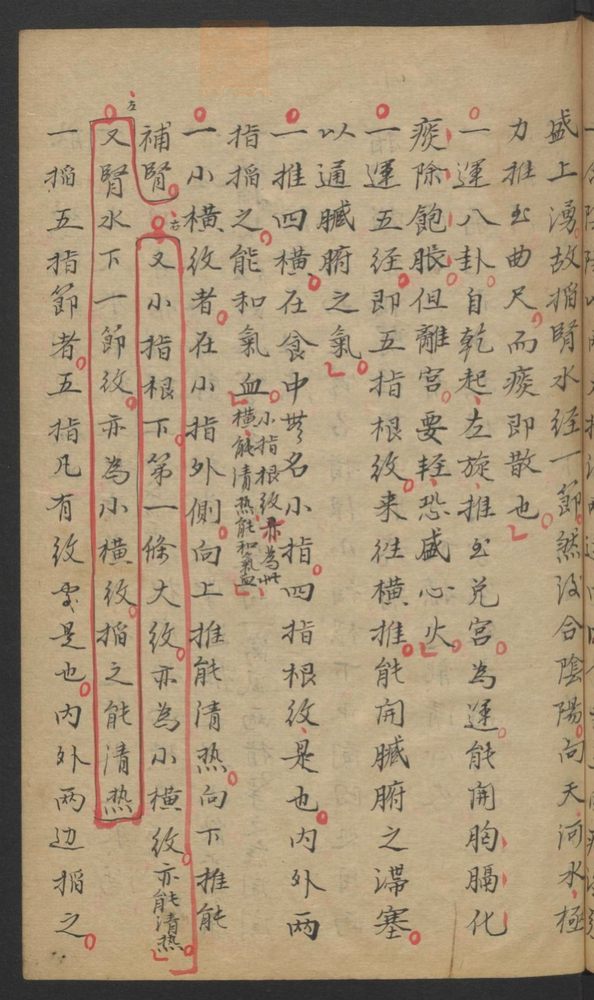 盛上湧故掐腎水經一節然後合陰陽向天河水極
力推至曲尺而痰即散也
一運八卦自乾起左旋推至兌宮為運能開胸膈化
痰除飽脹但離宮要軽恐感心火
一運五経即五指根紋来往橫推能開臓腑之滯塞
以通臓腑之氣
一推四橫在食中無名小指四指根紋是也内外兩
指掐之能和氣血小指根紋亦為
橫能清热能和氣血
一小橫紋者在小指外側向上推能清热向下推能
補腎
右
又小指根下第一條大紋亦為小橫紋亦能清热
左
又腎水下一節紋亦為小橫紋掐之能清热
一掐五指節者五指凡有紋处是也内外两边掐之